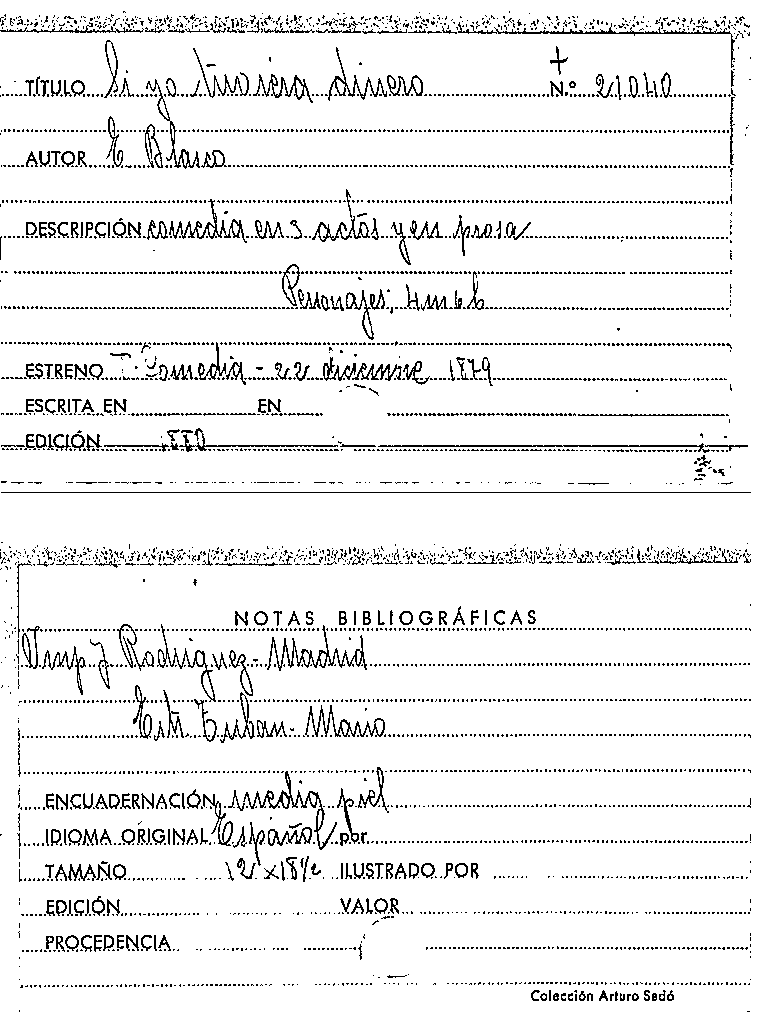 +
TÍTULO Si yo tuviera dinero N.º 21040
AUTOR E Blasco
DESCRIPCIÓN comedia en 3 actos y en prosa
Personajes; 4m 6h
ESTRENO T. Comedia - 22 diciembre 1879
ESCRITA EN EN
EDICIÓN 1880
NOTAS BIBLIOGRÁFICAS
Imp J Rodriguez - Madrid
Tuban - Mario
ENCUADERNACIÓN media piel
IDIOMA ORIGINAL Español por
TAMAÑO 12 x 18 1/2 ILUSTRADO POR
EDICIÓN VALOR
PROCEDENCIA
Colección Arturo Sedó